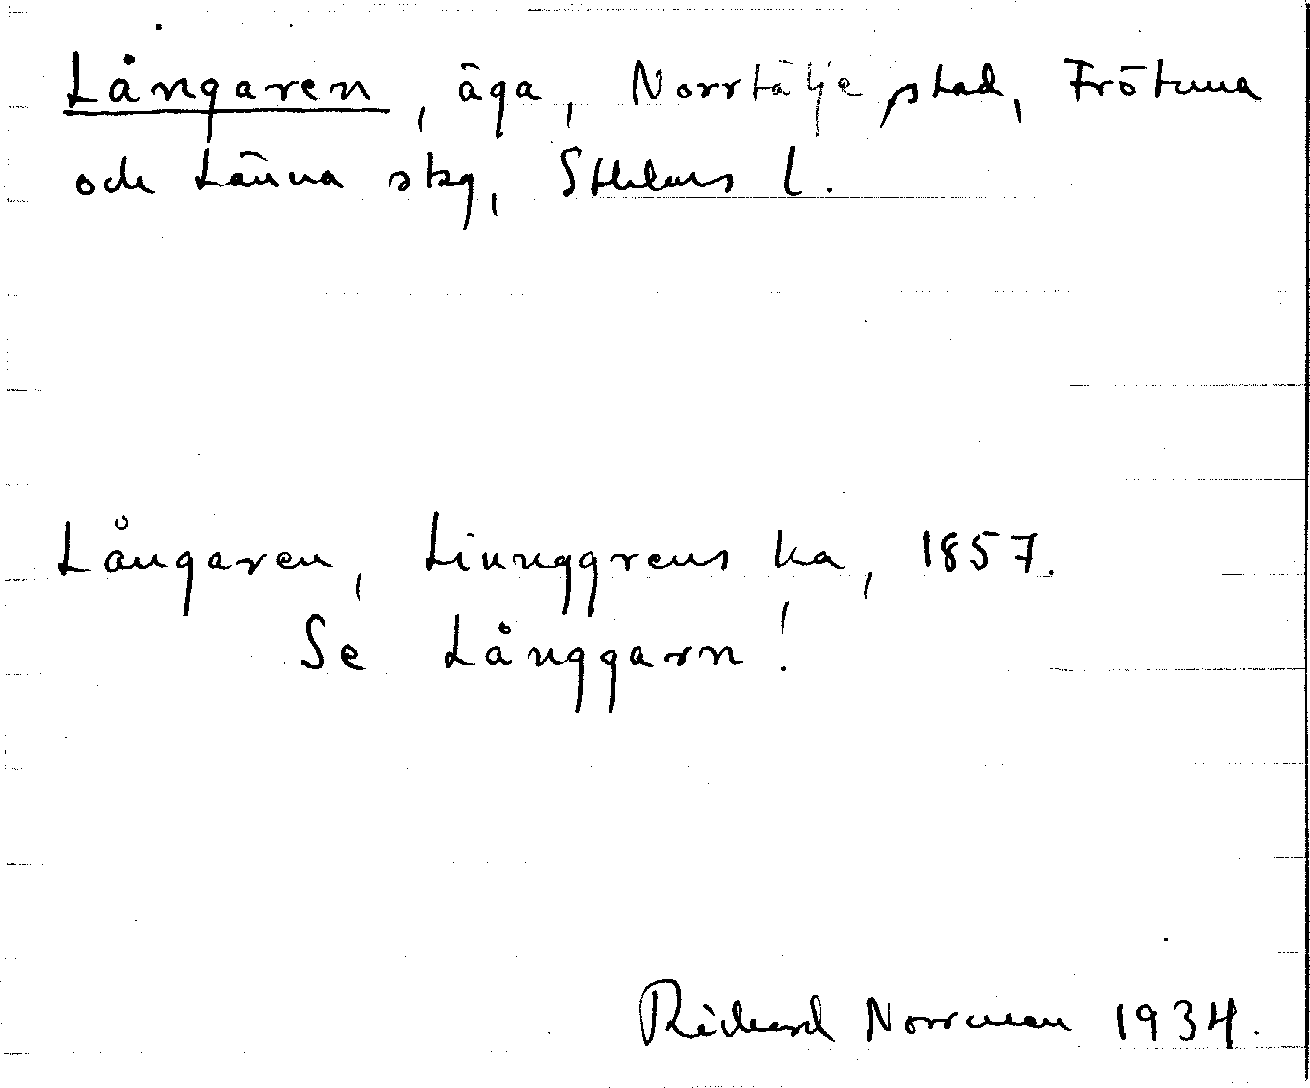 Långaren, äga, Norrtälje stad, Frötuna
och Länna skg, Sthlms l.
Långaren, Ljunggrens ka, 1857.
Se Långgarn!
Richard Norrman 1934.